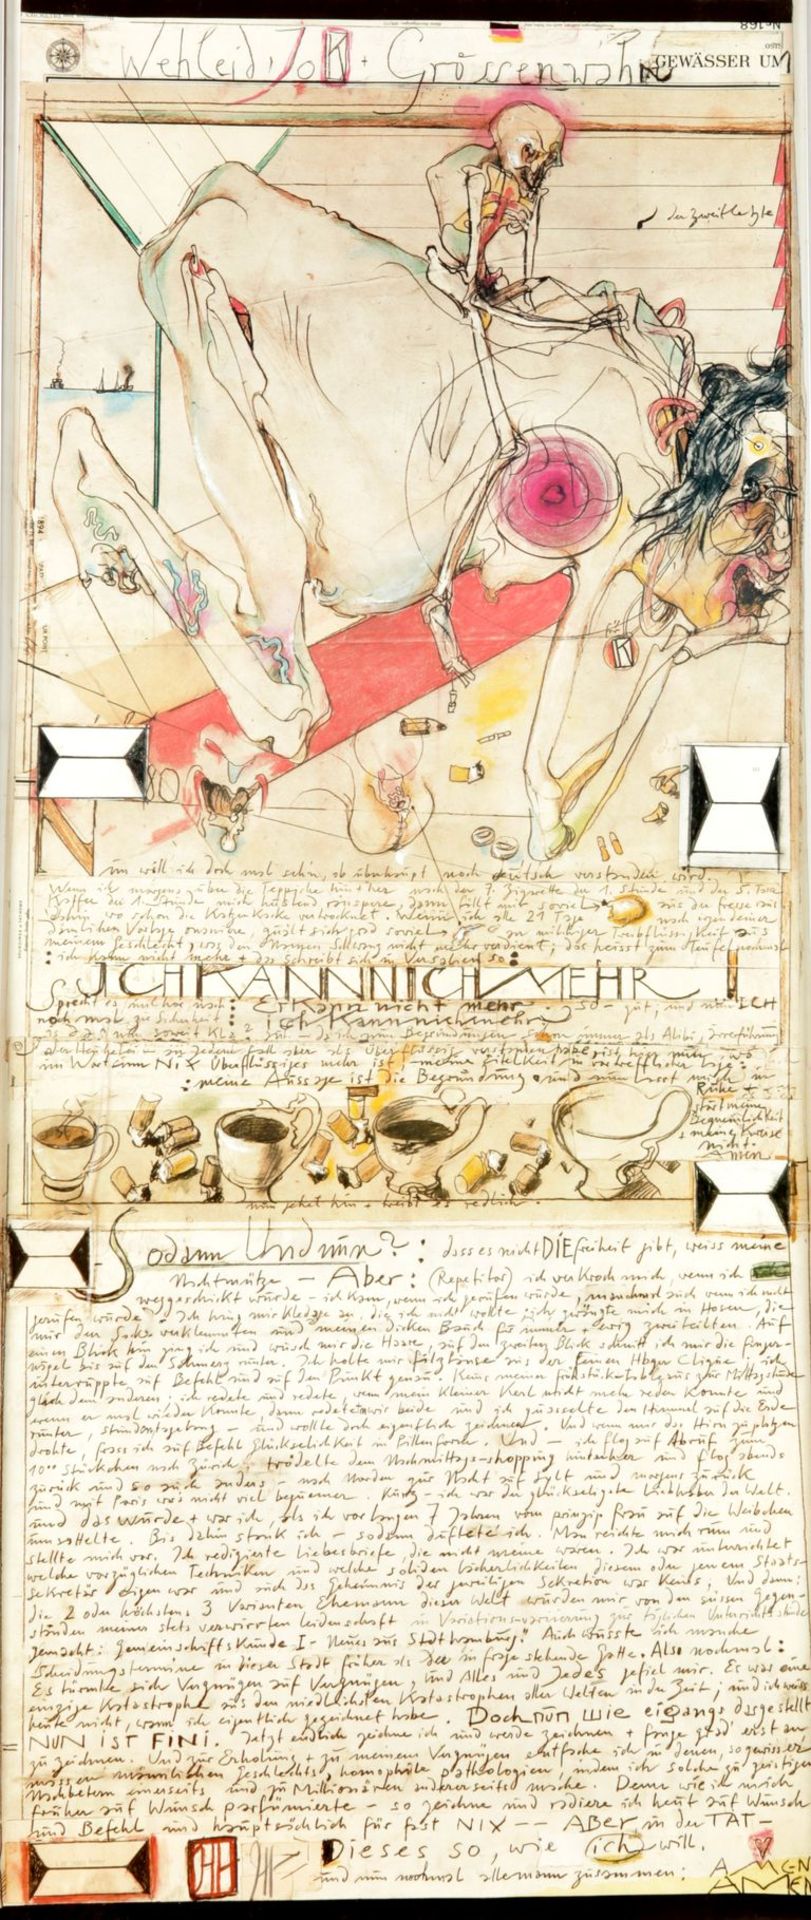 No 168
OSTS
Wehleid, Jo K + Grössenwahn
GEWÄSSER UM
der zweitletzte
1894
K
80
N
un will ich doch mal sehn, ob überhaupt noch deutsch verstanden wird.
Wenn ich morgens über die Teppiche hin + her nach der 7. Zigarette der 1. Stunde und der 5. Tasse
Kaffee der 1. Stunde mich hustend räuspere, dann fällt mir soviel aus der Fresse aus
dahin, wo schon die Katzenkacke vertrocknet. Wenn ich alle 21 Tage nach irgendeiner
dämlichen Vorlage onaniere, quillt sich grad soviel an milchiger Treibflüssigkeit aus
meinem Geschlecht, was den Namen Schwanz nicht mehr verdient; das heisst zum Teufel
: ich kann nicht mehr + das schreibt sich in Versalien so:
ICHKANNNICHMEHR !
Sprecht es mir hier nach: Er kann nicht mehr. So - gut, und nun ICH
noch mal zu Sicherheit: ich kannnichmehr
ist das nun soweit klar? gut - da ich zum Begründungen schon immer als Alibi, Irreführung
oder Heuchelei - in jedem Fall aber als Überflüssig verstanden habe, ist hier nun, wo
im Wort NIX Überflüssiges mehr ist, meine Eitelkeit in vortrefflicher Lage:
: meine Aussage ist die Begründung und nun lasst mich in
Ruhe +
stört meine
Bequemlichkeit
+ meine Kreise
nicht.
Amen.
nun gehet hin + treibt es redlich.
Sodann Undnun? : dass es nicht DIE freiheit gibt, weiss meine
Nachtmütze - Aber: (Repetitor) ich verkroch mich, wenn ich
weggeschickt würde - ich kam, wenn ich gerufen würde, manchmal auch wenn ich nicht
gerufen würde. Ich hing mir Kledage an, die ich nicht wollte: ich zwängte mich in Hosen, die
mir den Sack verklemmten und meinen dicken Bauch für immer + ewig zweiteilten. Auf
einen Blick hin ging ich und wusch mir die Haare, auf den zweiten Blick schnitt ich mir die Finger-
nägel bis auf den Schmerz runter. Ich holte mir Filzläuse aus der feinen Hbger Clique, ich
unterruppte auf Befehl und auf den Punkt genau. Keins meiner frühstücks zur Mittagsstunde
glich dem anderen: ich redete und redete, wenn mein kleiner Kerl nicht mehr reden konnte und
wenn er mal wieder konnte, dann redeten wir beide und ich quasselte den Himmel auf die Erde
runter, stundentagelang - und wollte doch eigentlich zeichnen. Und wenn mir das Hirn zu platzen
drohte, frass ich auf Befehl Glückseligkeit in Pillenform. Und - ich flog auf Abruf zum
10°° Stückchen nach Zürich - trödelte dem Nachmittags-shopping hinterher und flog abends
zurück und so auch anders - nach Norden zur Nacht auf Sylt und morgens zurück
und mit Paris war's nicht viel bequemer. Kurz - ich war der glückseligste Liebhaber der Welt.
und das wurde + war ich, als ich vor langen 7 Jahren vom prinzip frau auf die Weibchen
umsattelte. Bis dahin stank ich - sodann duftete ich. Man reichte mich rum und
stellte mich vor. Ich redigierte Liebesbriefe, die nicht meine waren. Ich war unterrichtet
welche vorzüglichen Techniken und welche soliden Lächerlichkeiten diesem oder jenem Staats-
Sekretär eigen war und auch das Geheimnis der jeweiligen Sekretion war keins; Und dann:
die 2 oder höchstens 3 Varianten Ehemann dieser Welt wurden mir von den süssen Gegen-
ständen meiner stets verwirrten Leidenschaft in Variations-variierung zur täglichen Unterrichtsstunde
gemacht: Gemeinschaftskunde I - Neues aus Stadt Hamburg." Auch wusste ich manche
Scheidungstermine in dieser Stadt früher als der in Frage stehende Gatte. Also nochmal:
Es türmte sich Vergnügen auf Vergnügen, Und Alles und Jedes gefiel mir. Es was eine
einzige Katastrophe aus den niedlichsten Katastrophen aller Welten in der Zeit; und ich weiss
heute nicht, wann ich eigentlich gezeichnet habe. Doch nun wie eigangs dargestellt
NUN IST FINI. Jetzt endlich zeichne ich und werde zeichnen + fange grad' erst an
zu zeichnen. Und zur Erholung + zu meinem Vergnügen entfache ich in denen, so gewisser
massen männlichen Geschlechts, homophile pathologien, indem ich solche zu geistigen
Nachbetern einerseits und zu Millionären andererseits mache. Denn wie ich mich
früher auf Wunsch parfümierte - so zeichne und radiere ich heut auf Wunsch
und Befehl und hauptsächlich für fast NIX -- ABER in der TAT -
Dieses so, wie ich will.
und nun nochmal allemann zusammen: AMEN
AMEN
JH